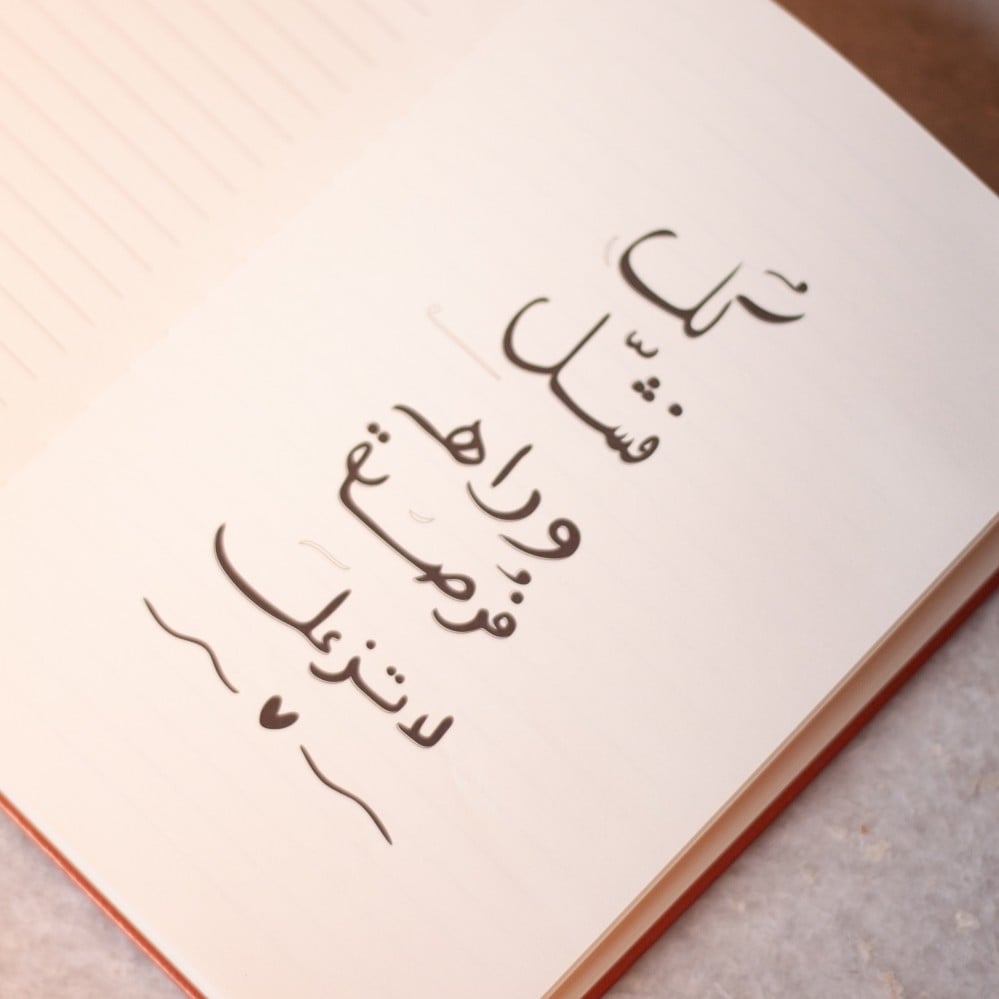 كُل
فشّل
وراها
فُرصة
لا تزعل